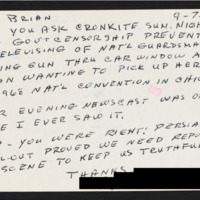 BRIAN 9-7
YOU ASK CRONKITE SUN. NIGH
GOVT CENSORSHIP PREVENT
TELEVISING OF NAT'L GUARDSMA
ING GUN THRU CAR WINDOW A
ON WANTING TO PICK UP HER
968 NAT'L CONVENTION IN CHIC
R EVENING NEWSCAST WAS O
E I EVER SAW IT.
- YOU WERE RIGHT; PERSIA
L-OUT PROVED WE NEED REPO
SCENE TO KEEP US TRUTHFU
THANKS